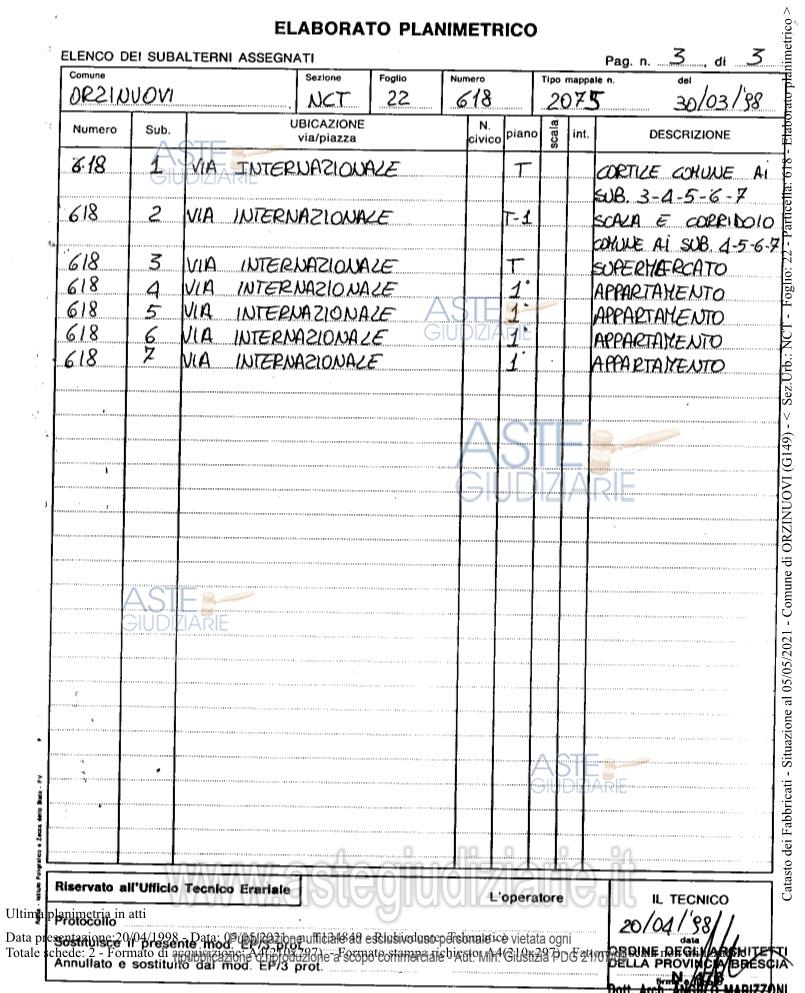 ELABORATO PLANIMETRICO
ELENCO DEI SUBALTERNI ASSEGNATI
Pag. n. 3 di 3
Comune Sezione Foglio Numero Tipo mappale n. del
ORZINUOVI NCT 22 618 2075 30/03/98
Numero Sub. UBICAZIONE via/piazza N. civico piano scala int. DESCRIZIONE
618 1 VIA INTERNAZIONALE T CORTILE COMUNE Ai
SUB. 3-4-5-6-7
618 2 VIA INTERNAZIONALE T-1 SCALA E CORRIDOIO
COMUNE Ai SUB. 4-5-6-7
618 3 VIA INTERNAZIONALE T SUPERMERCATO
618 4 VIA INTERNAZIONALE 1° APPARTAMENTO
618 5 VIA INTERNAZIONALE 1° APPARTAMENTO
618 6 VIA INTERNAZIONALE 1° APPARTAMENTO
618 7 VIA INTERNAZIONALE 1° APPARTAMENTO
ASTE GIUDIZIARIE
ASTE GIUDIZIARIE
ASTE GIUDIZIARIE
ASTE GIUDIZIARIE
ASTE GIUDIZIARIE
www.astegiudiziarie.it
Riservato all'Ufficio Tecnico Erariale
L'operatore
IL TECNICO
Ultima planimetria in atti
Protocollo
20/04/98
data
Data presentazione:20/04/1998 - Data: 05/05/2021
Pubblicazione ufficiale ad esclusivo uso personale - è vietata ogni
Sostituisce il presente mod. EP/3 prot.
Totale schede: 2 - Formato di acquisizione
ripubblicazione o riproduzione a scopo commerciale - Aut. Min. Giustizia PDG 21/07/
Annullato e sostituito dal mod. EP/3 prot.
ORDINE DEGLI ARCHITETTI
DELLA PROVINCIA BRESCIA
Dott. Arch. ANGELO MARIZZONI
Catasto dei Fabbricati - Situazione al 05/05/2021 - Comune di ORZINUOVI (G149) - < Sez.Urb.: NCT - Foglio: 22 - Particella: 618 - Elaborato planimetrico >